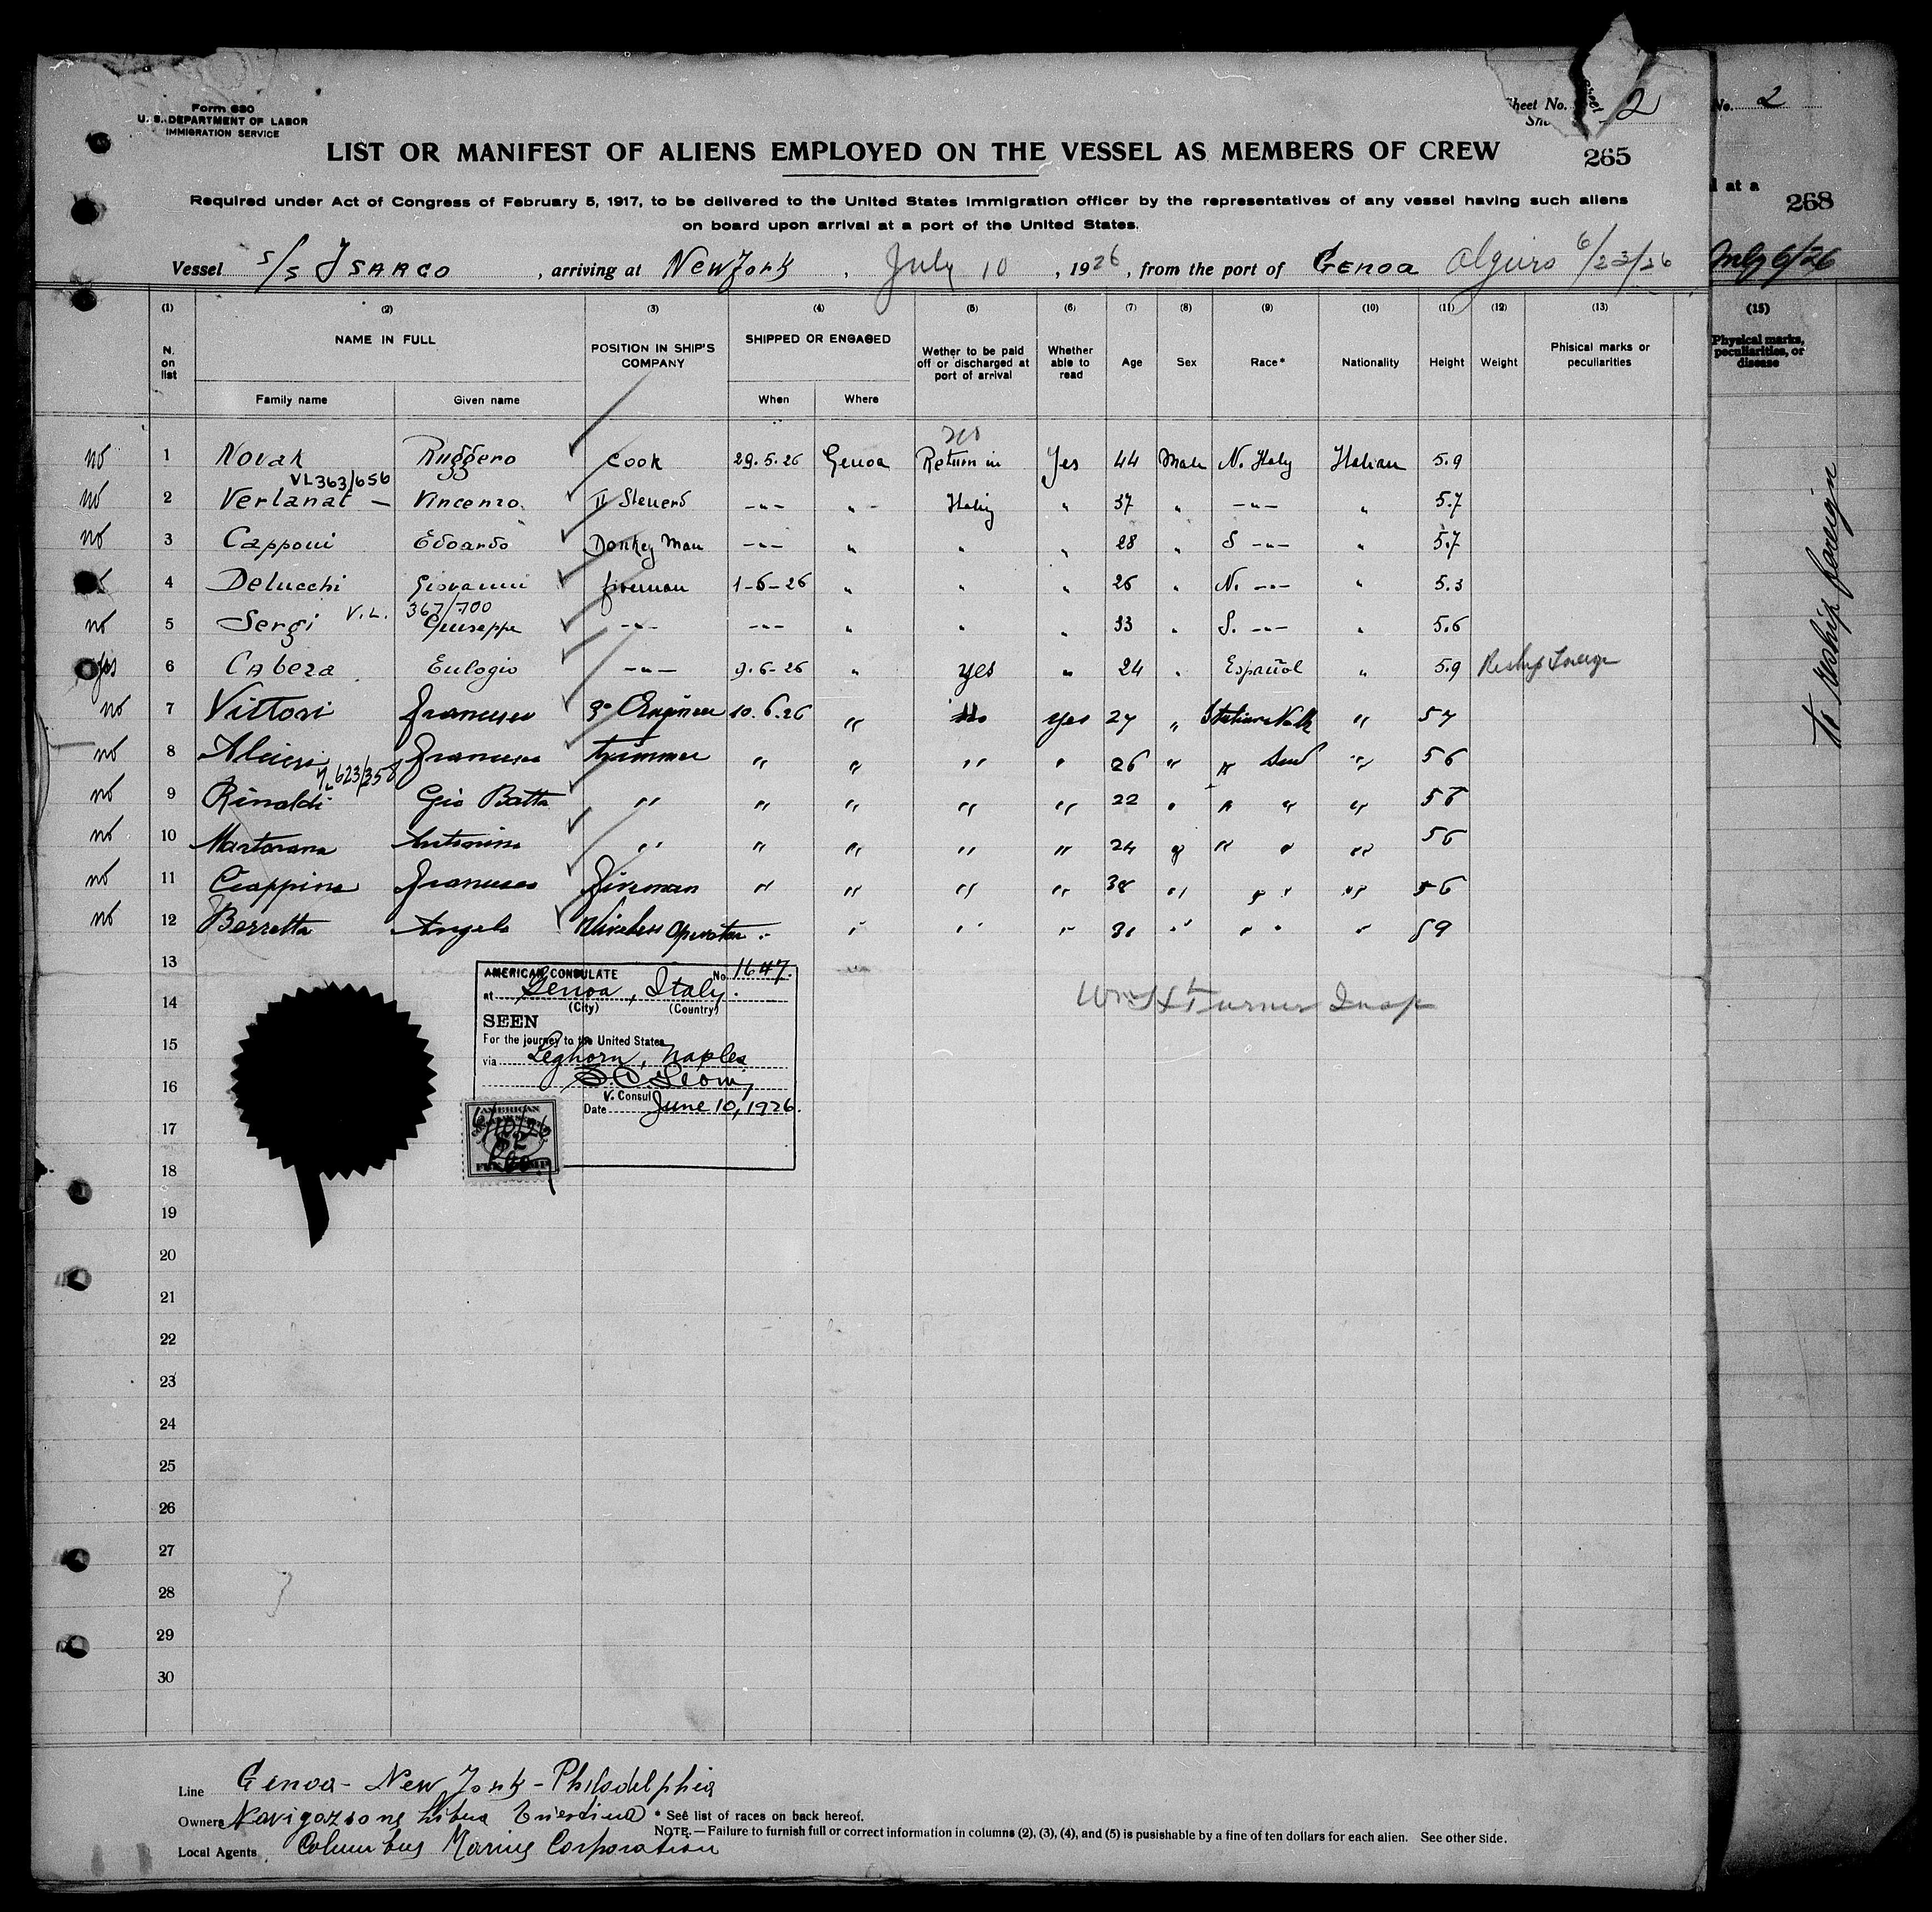 Form 680
U. S. DEPARTMENT OF LABOR
IMMIGRATION SERVICE
Sheet No. 2
No. 2
LIST OR MANIFEST OF ALIENS EMPLOYED ON THE VESSEL AS MEMBERS OF CREW
265
Required under Act of Congress of February 5, 1917, to be delivered to the United States Immigration officer by the representatives of any vessel having such aliens
on board upon arrival at a port of the United States.
at a
268
Vessel S/S ISARCO , arriving at New York , July 10 , 1926 , from the port of GENOA 6/23/26
July 6/26
(1) (2) (3) (4) (5) (6) (7) (8) (9) (10) (11) (12) (13) (15)
N. on list NAME IN FULL Family name Given name POSITION IN SHIP'S COMPANY SHIPPED OR ENGAGED When Where Wether to be paid off or discharged at port of arrival Whether able to read Age Sex Race* Nationality Height Weight Phisical marks or peculiarities
Physical marks, peculiarities, or disease
no 1 Novak Ruggero Cook 29.5.26 Genoa Return in Yes 44 Male N. Italy Italian 5.9
VL 363/656
no 2 Verlanat — Vincenzo II Steuerd -"- " - Italy " 37 " -"- " 5.7
no 3 Capponi Edoardo Donkey Man -"- " " " 28 " S -"- " 5.7
4 Delucchi Giovanni fireman 1-6-26 " " " 26 " N. -"- " 5.3
V.L. 367/700
no 5 Sergi Giuseppe -"- -"- " " " 33 " S. -"- " 5.6
yes 6 Cabeza Eulogio -"- 9.6-26 " yes " 24 " Español " 5.9 Reship Foreign
no 7 Vittori Francesco 3° Engineer 10.6.26 " No yes 27 " Italian North " 57
no 8 Francesco trimmer " " " " 26 " " Sud " 56
623/358
no 9 Rinaldi Gio Batta " " " " " 22 " " " " 56
no 10 Martorana Antonino " " " " " 24 " " " " 56
no 11 Ciappina Francesco Fireman " " " " 38 " " " " 56
no 12 Berretta Angelo Wireless Operator " " " " 31 " " " " 59
13
14
15
16
17
18
19
20
21
22
23
24
25
26
27
28
29
30
AMERICAN CONSULATE No. 1647.
at Genoa, Italy.
(City) (Country)
SEEN
For the journey to the United States
via Leghorn, Naples
V. Consul
Date June 10, 1926.
AMERICAN
6/10/26
$2
FEE STAMP
Turner Insp
to reship foreign
Line Genoa - New York - Philadelphia
Owners Navigazione Libera Triestina * See list of races on back hereof.
NOTE.—Failure to furnish full or correct information in columns (2), (3), (4), and (5) is pusishable by a fine of ten dollars for each alien. See other side.
Local Agents Columbus Marine Corporation